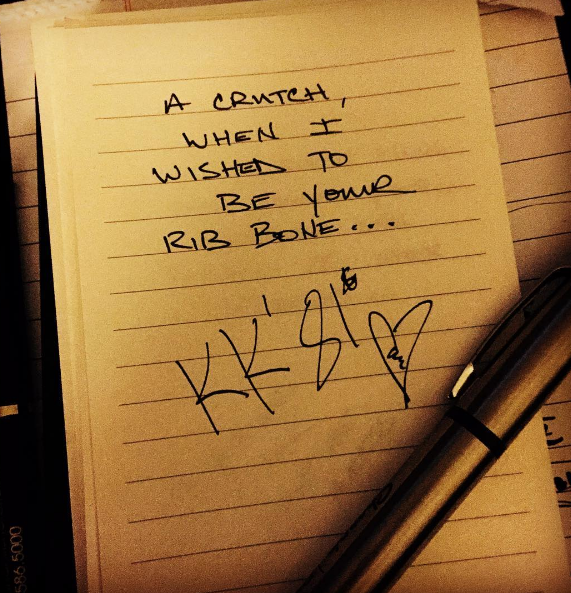 A CRUTCH,
WHEN I
WISHED TO
BE YOUR
RIB BONE...
KK'81
586 5000